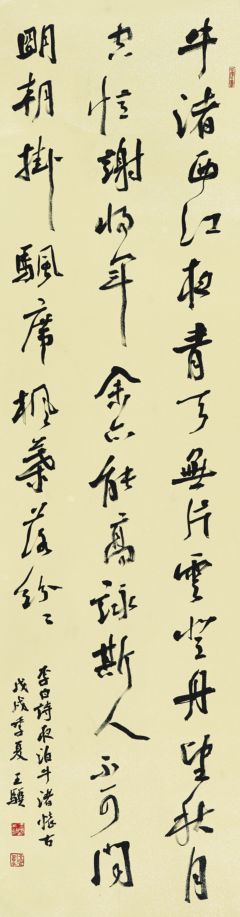 牛渚西江夜青天無片雲登舟望秋月
空憶謝將軍余亦能高詠斯人不可聞
明朝掛颿席楓葉落紛〻
李白詩夜泊牛渚懷古
戊戌季夏王